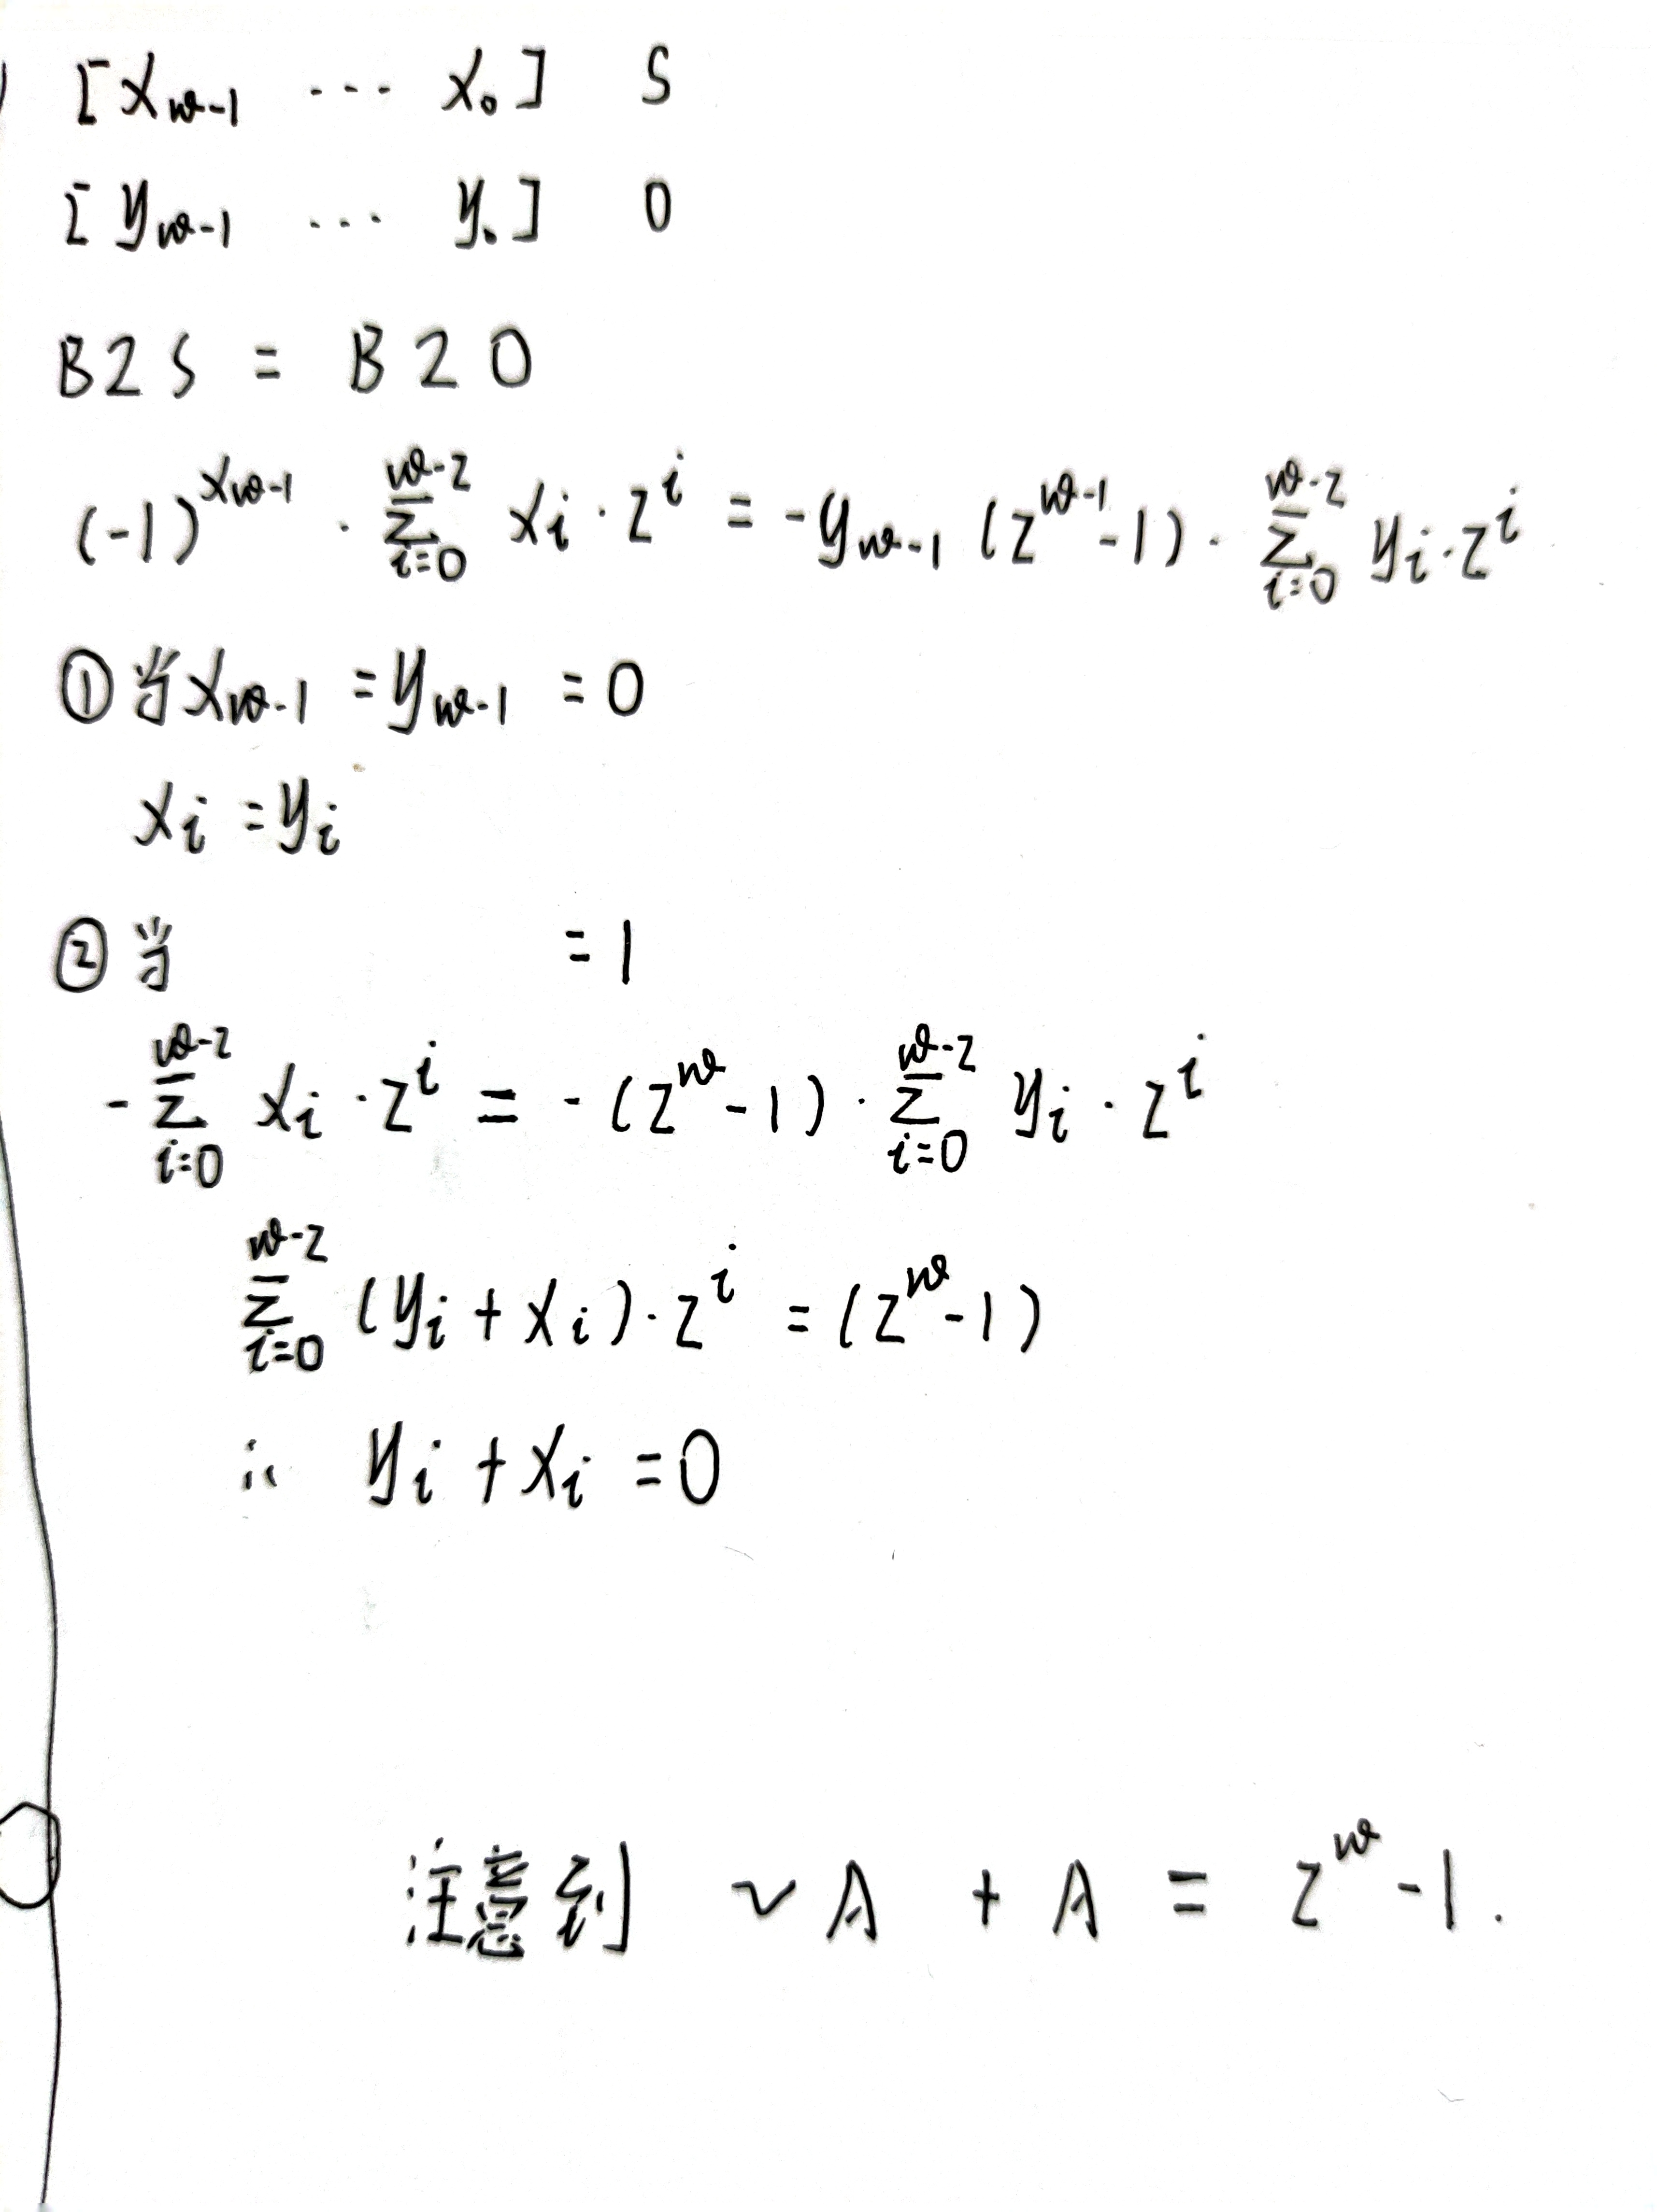 [x_{w-1} ... x_0] S
[y_{w-1} ... y_0] O
B2S = B2O
(-1)^{x_{w-1}} · Σ_{i=0}^{w-2} x_i · 2^i = -y_{w-1} (2^{w-1} -1) · Σ_{i=0}^{w-2} y_i · 2^i
① 当 x_{w-1} = y_{w-1} = 0
x_i = y_i
② 当 = 1
- Σ_{i=0}^{w-2} x_i · 2^i = - (2^w - 1) · Σ_{i=0}^{w-2} y_i · 2^i
Σ_{i=0}^{w-2} (y_i + x_i) · 2^i = (2^w - 1)
∴ y_i + x_i = 0
注意到 ~A + A = 2^w - 1.